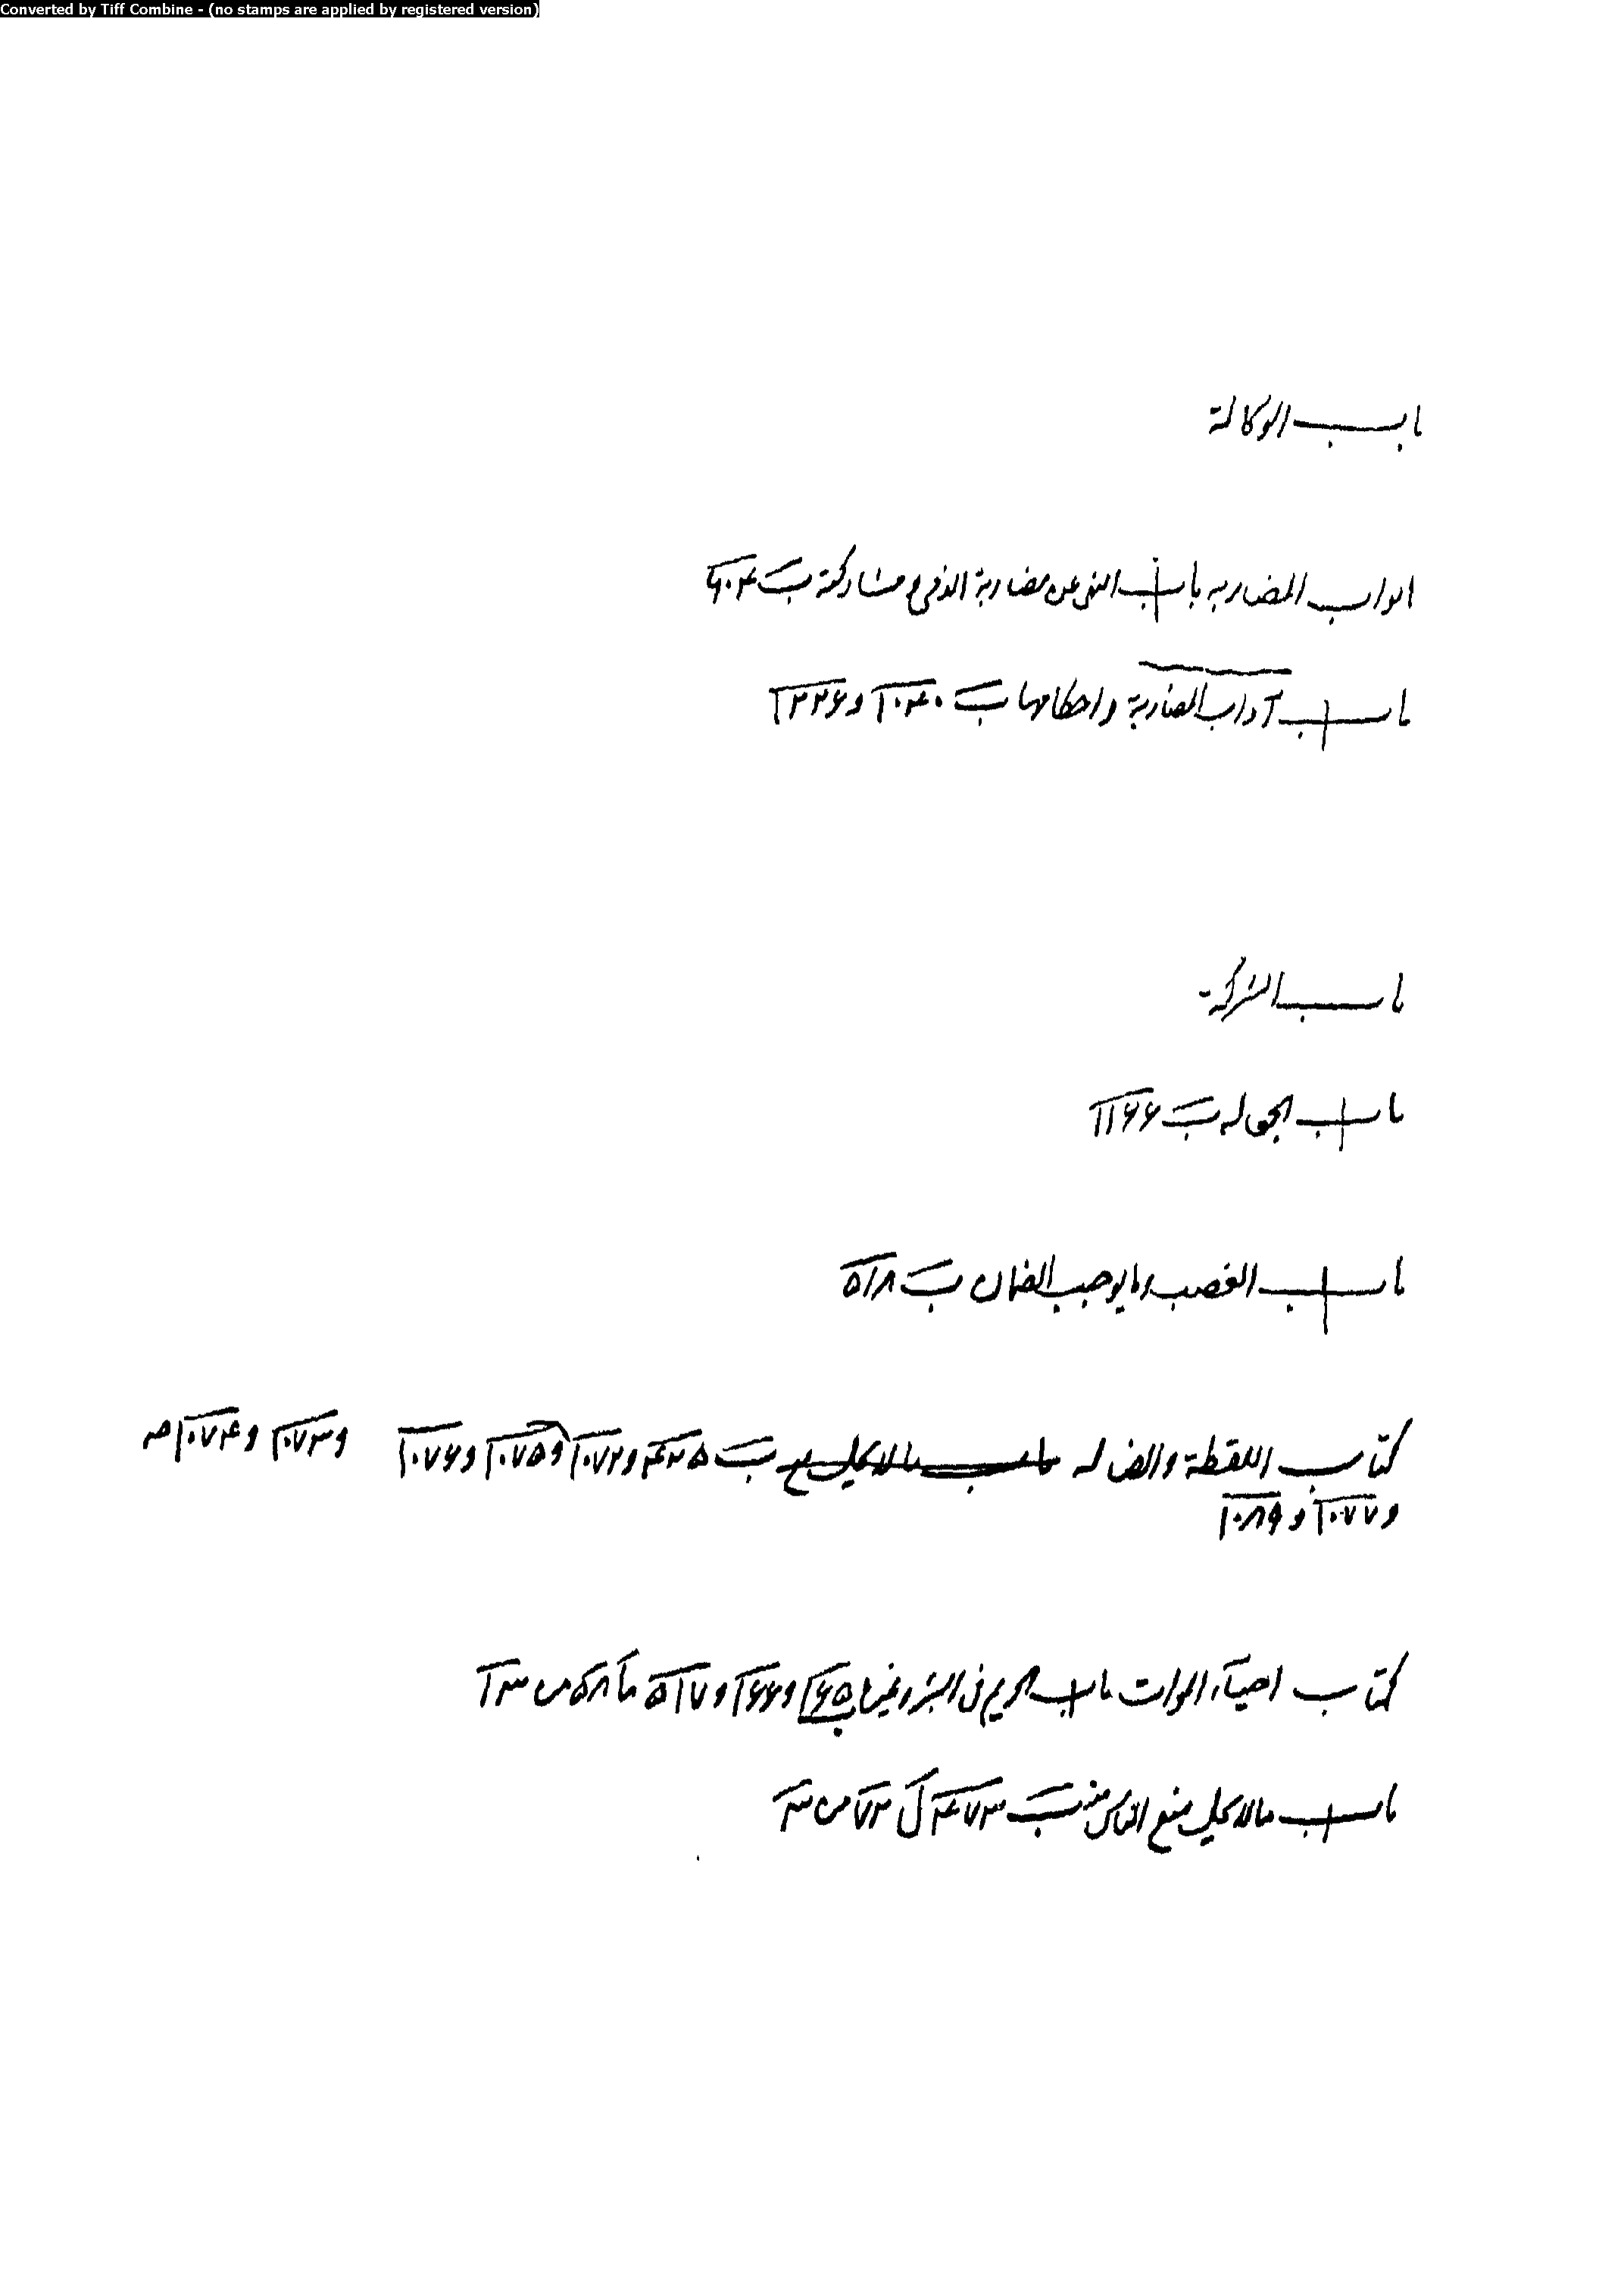 Converted by Tiff Combine - (no stamps are applied by registered version)
باب الوكالة
ابواب المضاربه باب النهى عن مضاربة الذمى و مشاركته ب ۶۰۴
باب آداب المضاربة و احكامها ب ۱۰۴۰ و ۱۲۲۶
باب الشركة
باب الجعاله ب ۱۱۶۶
باب الغصب و ما يوجب الضمان ب ۵۱۸
كتاب اللقطة والضاله ب ۴۲۵ و ۱۰۷۲ و ۱۰۷۵ و ۱۰۷۶ و ۱۰۷۳ و ۱۰۷۴
و ۱۰۷۷ و ۱۰۸۹
كتاب احياء الموات باب الحريم فى البئر و غيرها ب ۱۶۵ و ۱۶۶ و ۵۱۷ ما ۵۸ س ۱۳
باب ما لا يحل منع الناس منه ب ۴۷۳ ل ۷۳ س ۳